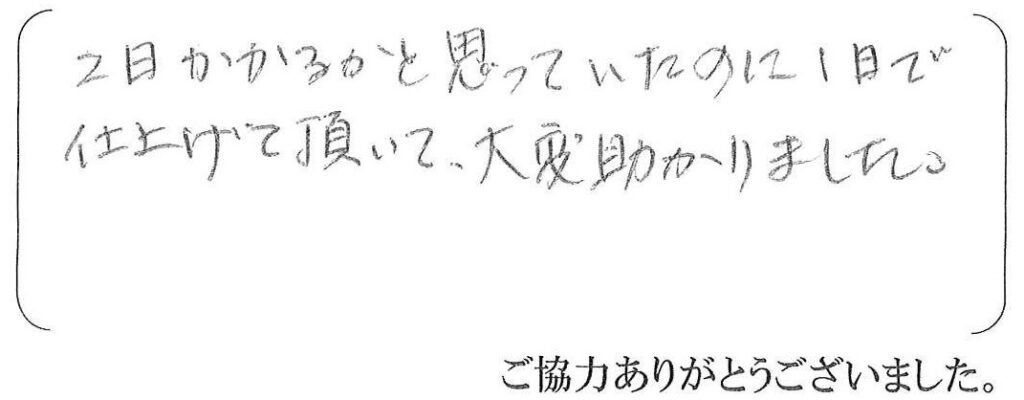 2日かかるかと思っていたのに1日で
仕上げて頂いて、大変助かりました。
ご協力ありがとうございました。